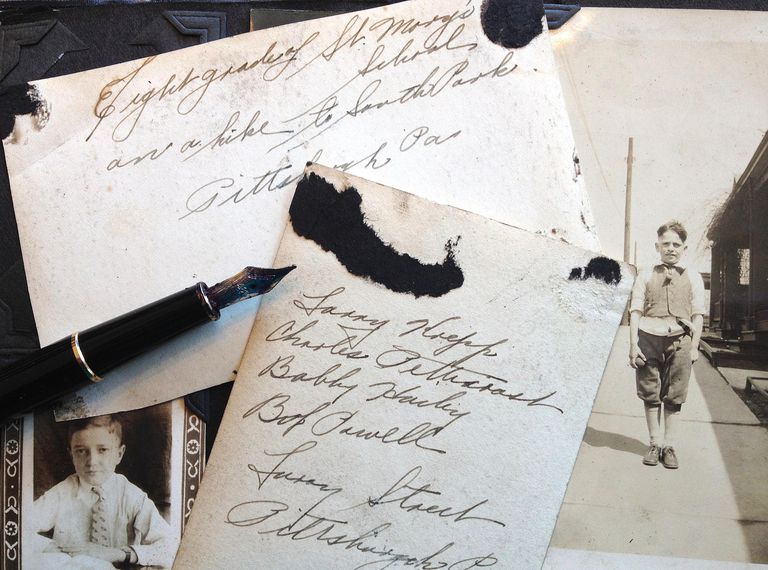 Eight grade of St. Mary's
School
on a hike to South Park.
Pittsburgh Pa
Larry
Charles
Bobby
Bob Powell
Street
Pittsburgh P